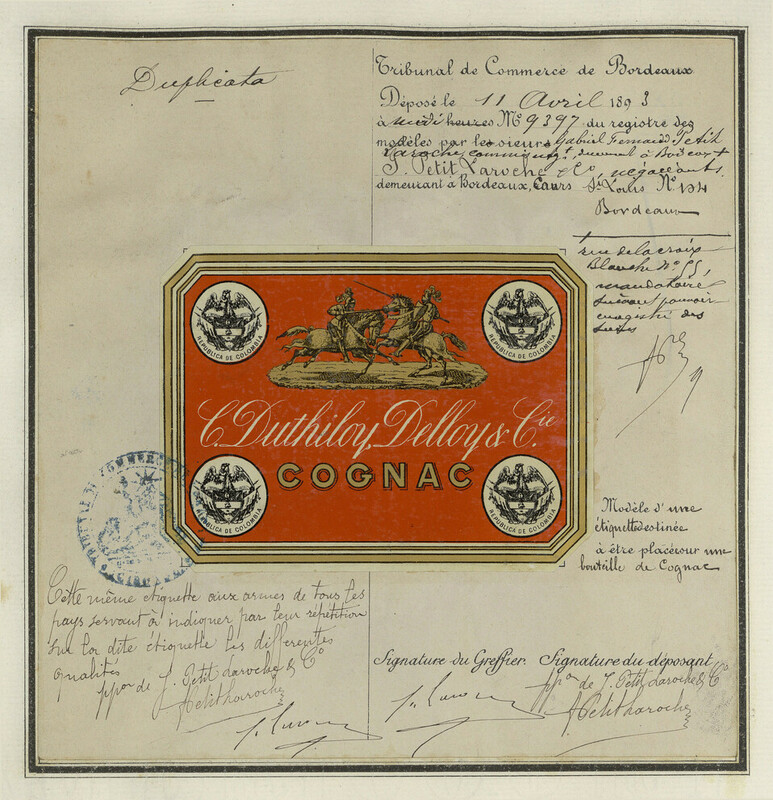 Duplicata
Tribunal de Commerce de Bordeaux
Déposé le 11 Avril 1893
à midi heures No 9397 du registre des
modèles par les sieurs Gabriel Fernand Petit
Laroche, demeurant à Bordeaux
J. Petit Laroche & Co, négociants
demeurant à Bordeaux, Cours St Louis No 134
Bordeaux
rue de lacroix
Blanche No 55,
mandataire
suivant pouvoir
enregistré des
REPUBLICA DE COLOMBIA
REPUBLICA DE COLOMBIA
C. Duthiloy, Delloy & Cie
COGNAC
REPUBLICA DE COLOMBIA
REPUBLICA DE COLOMBIA
TRIBUNAL DE COMMERCE
Modèle d'une
étiquette destinée
à être placée sur une
bouteille de Cognac
Cette même étiquette aux armes de tous les
pays servant à indiquer par leur répétition
sur la dite étiquette les differentes
qualités
ppon de J. Petit Laroche & Co
Petitlaroche
Signature du Greffier. Signature du déposant
ppon de J. Petit Laroche & Co
Petitlaroche